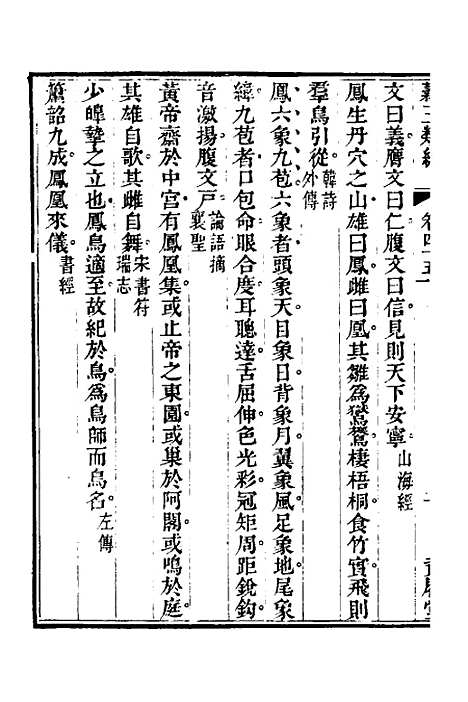 卷四十五
文曰義膺文曰仁腹文曰信見則天下安寧山海經
鳳生丹穴之山雄曰鳳雌曰凰其雛爲鸑鷟棲梧桐食竹實飛則
羣鳥引從韓詩外傳
鳳六象九苞六象者頭象天目象日背象月翼象風足象地尾象
緯九苞者口包命眼合度耳聰達舌屈伸色光彩冠矩周距銳鈎
音激揚腹文戸論語摘襄聖
黃帝齋於中宮有鳳凰集或止帝之東園或巢於阿閣或鳴於庭
其雄自歌其雌自舞宋書符瑞志
少皥摯之立也鳳鳥適至故紀於鳥爲鳥師而鳥名左傳
簫韶九成鳳凰來儀書經